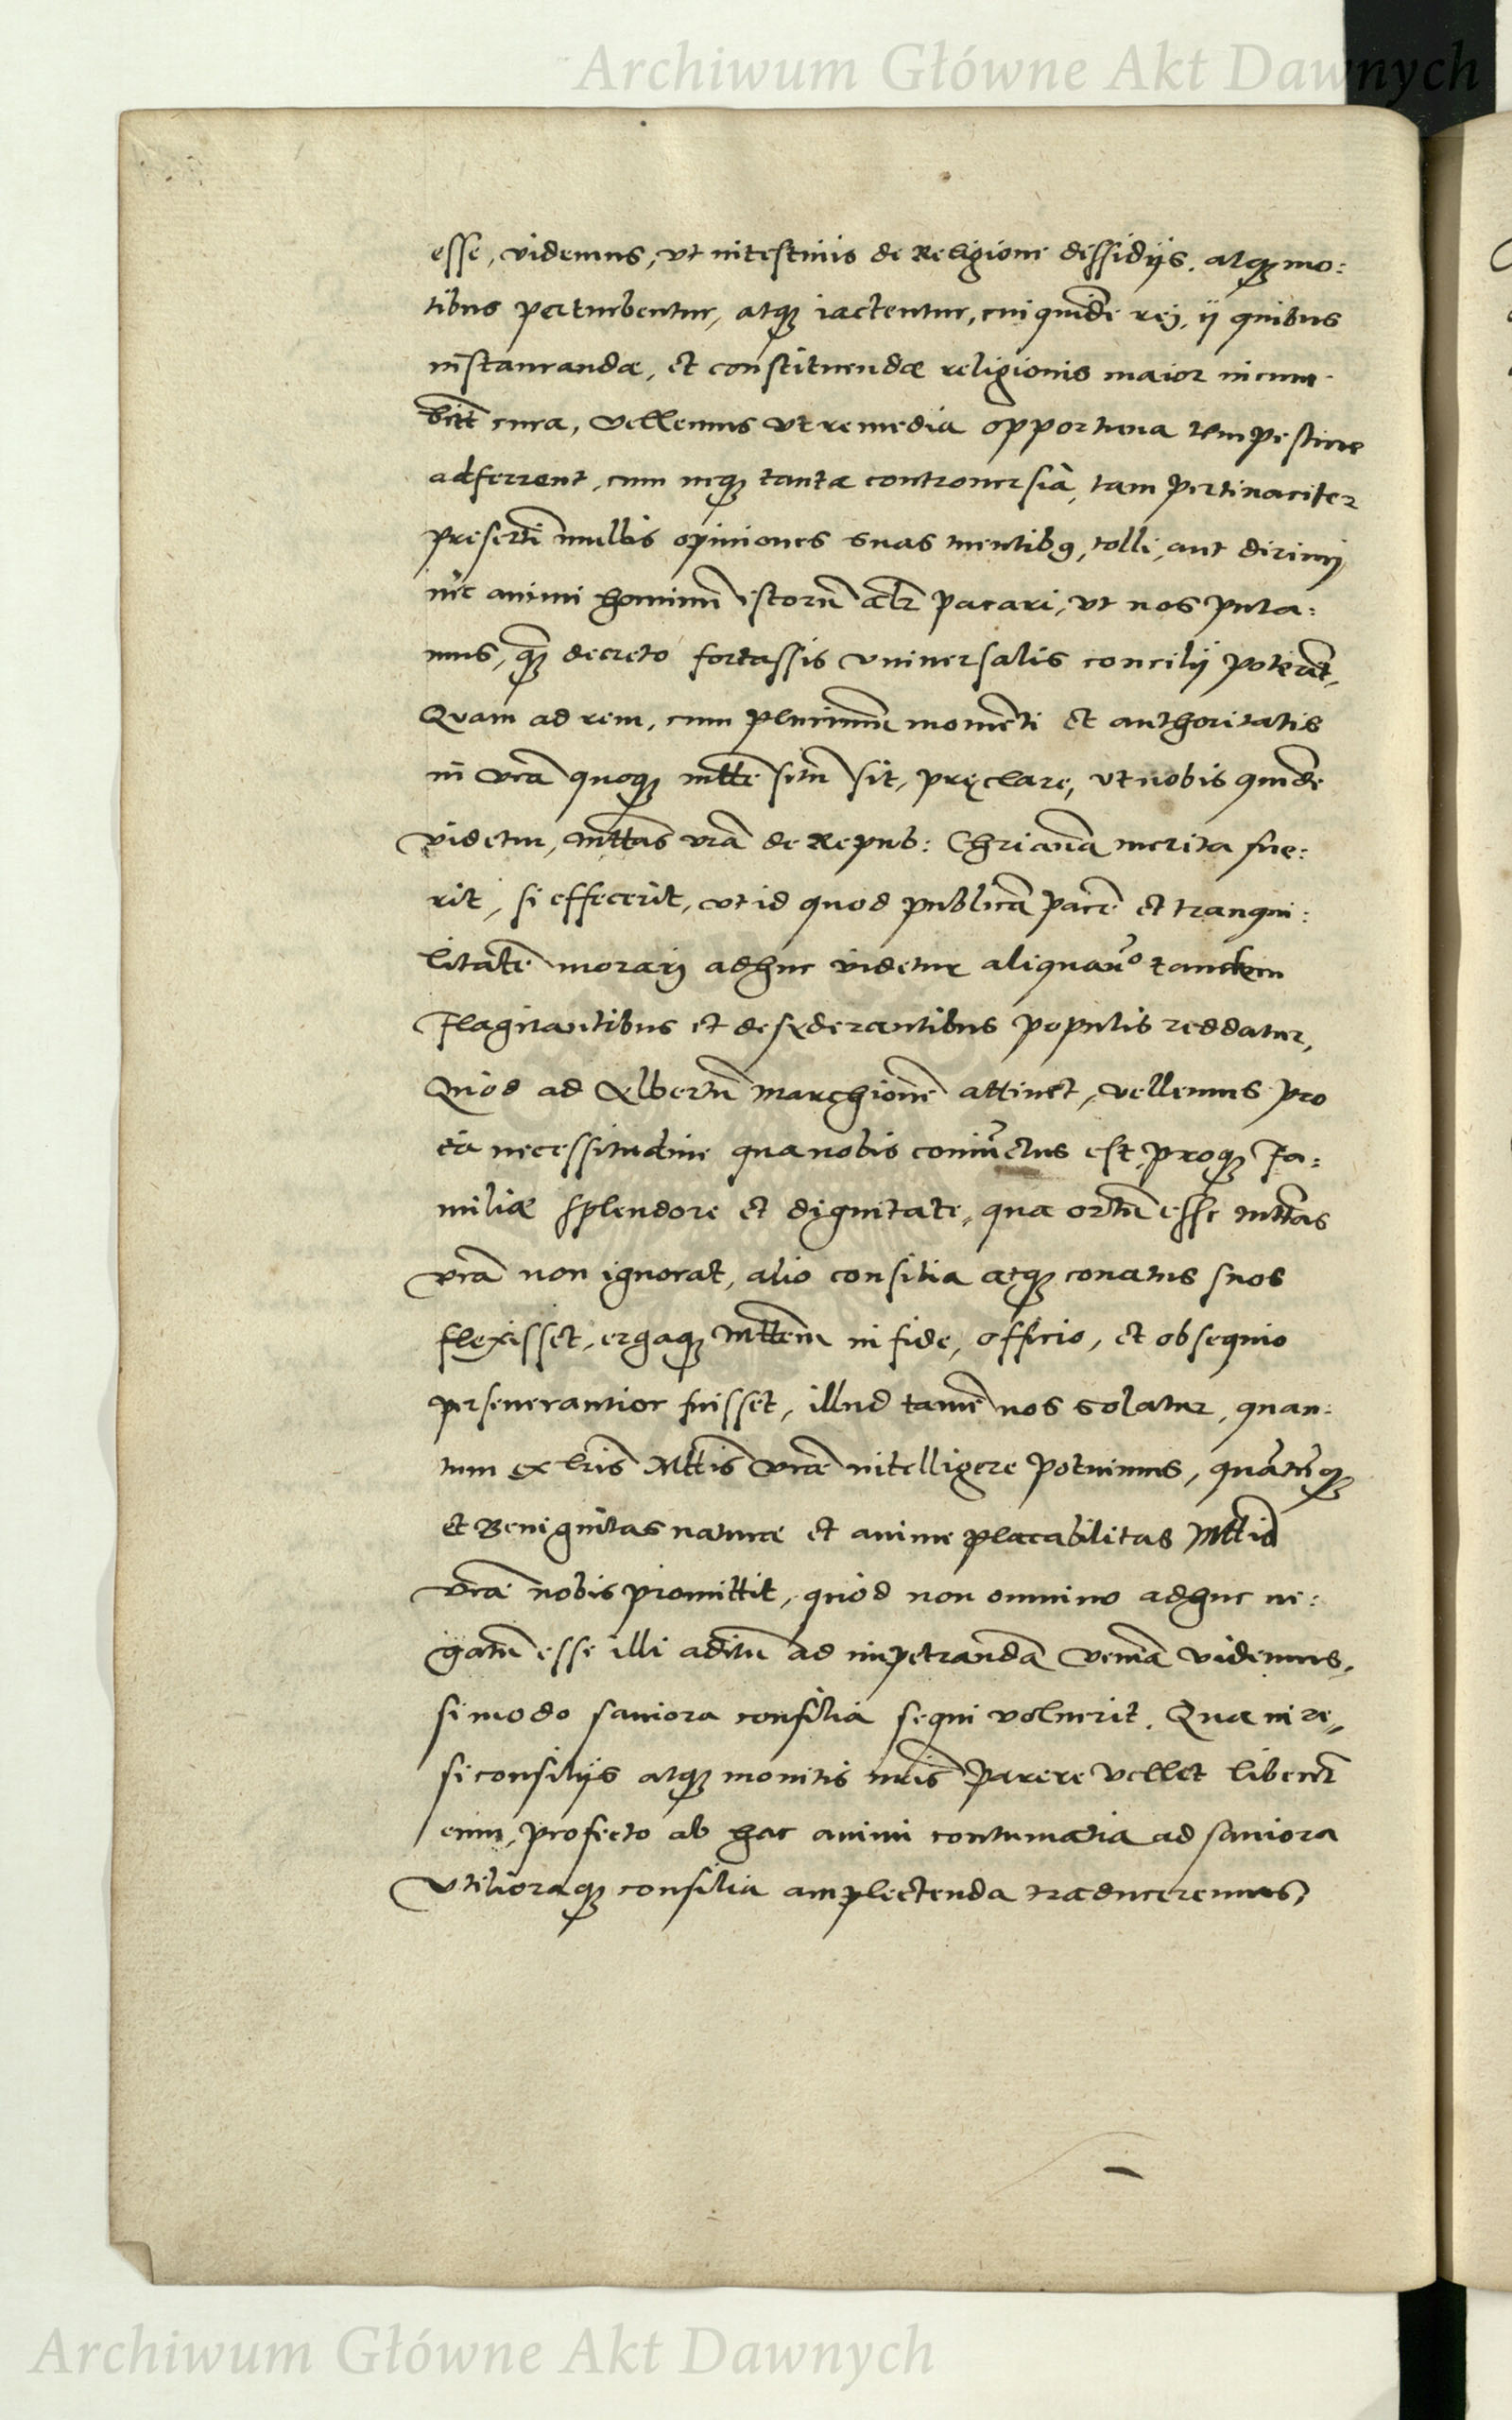 Archiwum Główne Akt Dawnych
esse, videmus, vt intestinis de Religione dissidijs, atq̃ mo:
tibus perturbentur, atq̃ iactentur, cui quidẽ rej, ij quibus
instaurandæ, et constituendæ religionis maior incum
bit cura, vellemus vt remedia opportuna tempestiue
adferrent, cum neq̃ tantæ controuersiæ, tam pertinaciter
presertĩ opiniones suas mentibꝰ, tolli, aut dirimj
nec animi hominũ istorũ alr̃ pacari, vt nos puta:
mus, q̃ decreto fortassis vniuersalis concilij poterãt,
Quam ad rem, cum plurimũ momẽti et authoritatis
in vrã quoq̃ mtte sitũ sit, pręclare, vt nobis quidẽ
videtur, mttas vrã de Repub: Chrianã merita fue:
rit, si effecerit, vt id quod publicã pacẽ et tranqui:
litatẽ morarj adhuc videtur aliquãdo tandem
flagitantibus et desyderantibus populis reddatur,
Quod ad Albertũ Marchionẽ attinet, vellemus pro
ea necessitudine qua nobis coniũctus est, proq̃ Fa:
miliæ splendore et dignitate, qua ortũ esse mttas
vrã non ignorat, alio consilia atq̃ conatus suos
flexisset, ergaq̃ Mttem in fide, officio, et obsequio
perseuerantior fuisset, illud tamẽ nos solatur, quan:
tum ex lr̃is Mttis vræ intelligere potuimus, quãtũq̃
et Benignitas naturæ et anime placabilitas Mttis
vræ nobis promittit, quod non omnino adhuc ne:
gatũ esse illi aditũ ad impetrandã veniã videmus,
si modo saniora consilia sequi voluerit. Qua in re,
si consilijs atq̃ monitis nr̃is parere vellet libent̃
eum, profecto ab hac animi contumatia ad saniora
vtilioraq̃ consilia amplectenda traduceremus,
Archiwum Główne Akt Dawnych